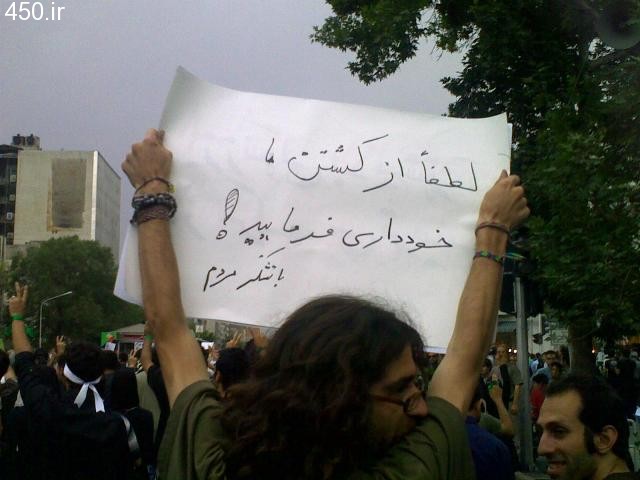 450.ir
لطفاً از کشتن ما
خودداری فرمایید!
با تشکر مردم